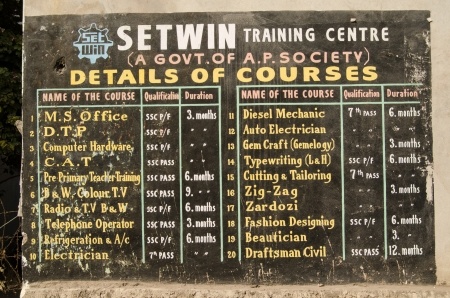 SET WIN
SETWIN TRAINING CENTRE
(A GOVT. OF A.P. SOCIETY)
DETAILS OF COURSES
NAME OF THE COURSE Qualification Duration
1 M.S. Office SSC P/F 3. months
2 D.T.P SSC P/F "
3 Computer Hardware SSC P/F "
4 C.A.T SSC PASS "
5 Pre Primary Teacher Training SSC PASS 6. months
6 B&W. Colour. T.V SSC PASS 9. "
7 Radio & T.V B&W SSC P/F 6. months
8 Telephone Operator SSC P/F 3. months
9 Refrigeration & A/c SSC P/F 6. months
10 Electrician 7th PASS "
NAME OF THE COURSE Qualification Duration
11 Diesel Mechanic 7th P/F 6. months
12 Auto Electrician " "
13 Gem Craft (Gemelogy) " 3. months
14 Typewriting (L&H) SSC P/F 6. months
15 Cutting & Tailoring 7th PASS "
16 Zig-Zag " "
17 Zardozi " "
18 Fashion Designing SSC P/F 6. months
19 Beautician " 3.
20 Draftsman Civil SSC PASS 12. months